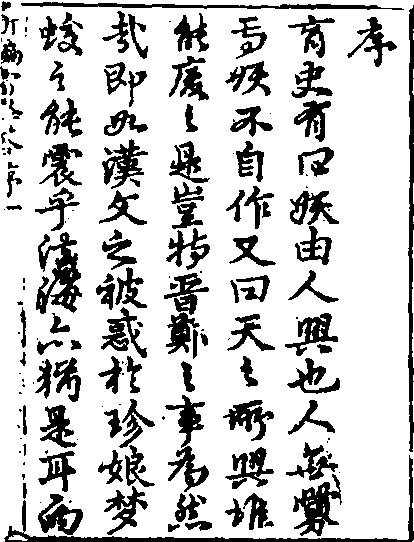 序
盲史有曰妖由人興也人無釁
焉妖不自作又曰天之所興誰
能廢之是豈特晉鄭之事為然
哉即如漢文之被惑於珍娘梦
蛟之能震乎法海亦猶是耳而
序一